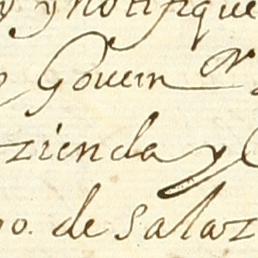 y notifique
Gouern.or
zienda y
po. de salaz